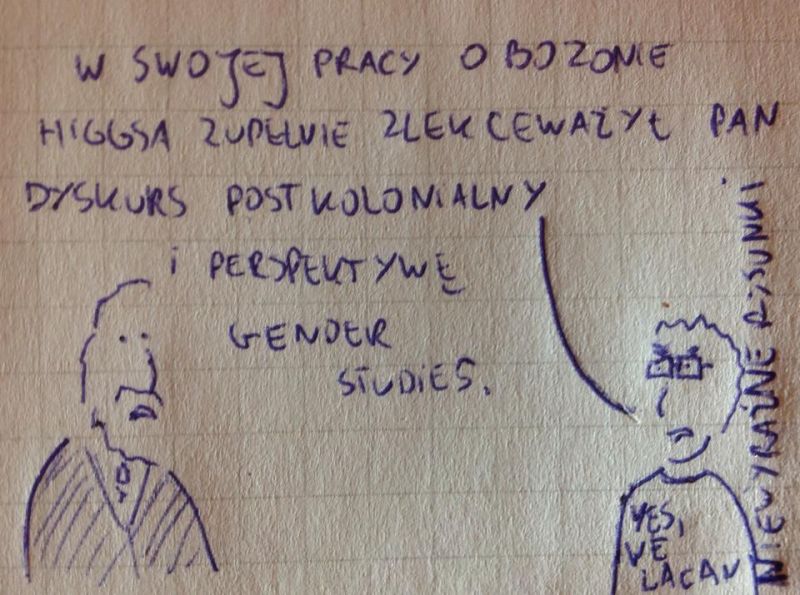 W SWOJEJ PRACY O BOZONIE
HIGGSA ZUPEŁNIE ZLEKCEWAŻYŁ PAN
DYSKURS POSTKOLONIALNY
i PERSPEKTYWĘ
GENDER
STUDIES.
YES,
WE
LACAN
NIEWYRAŹNE RYSUNKI